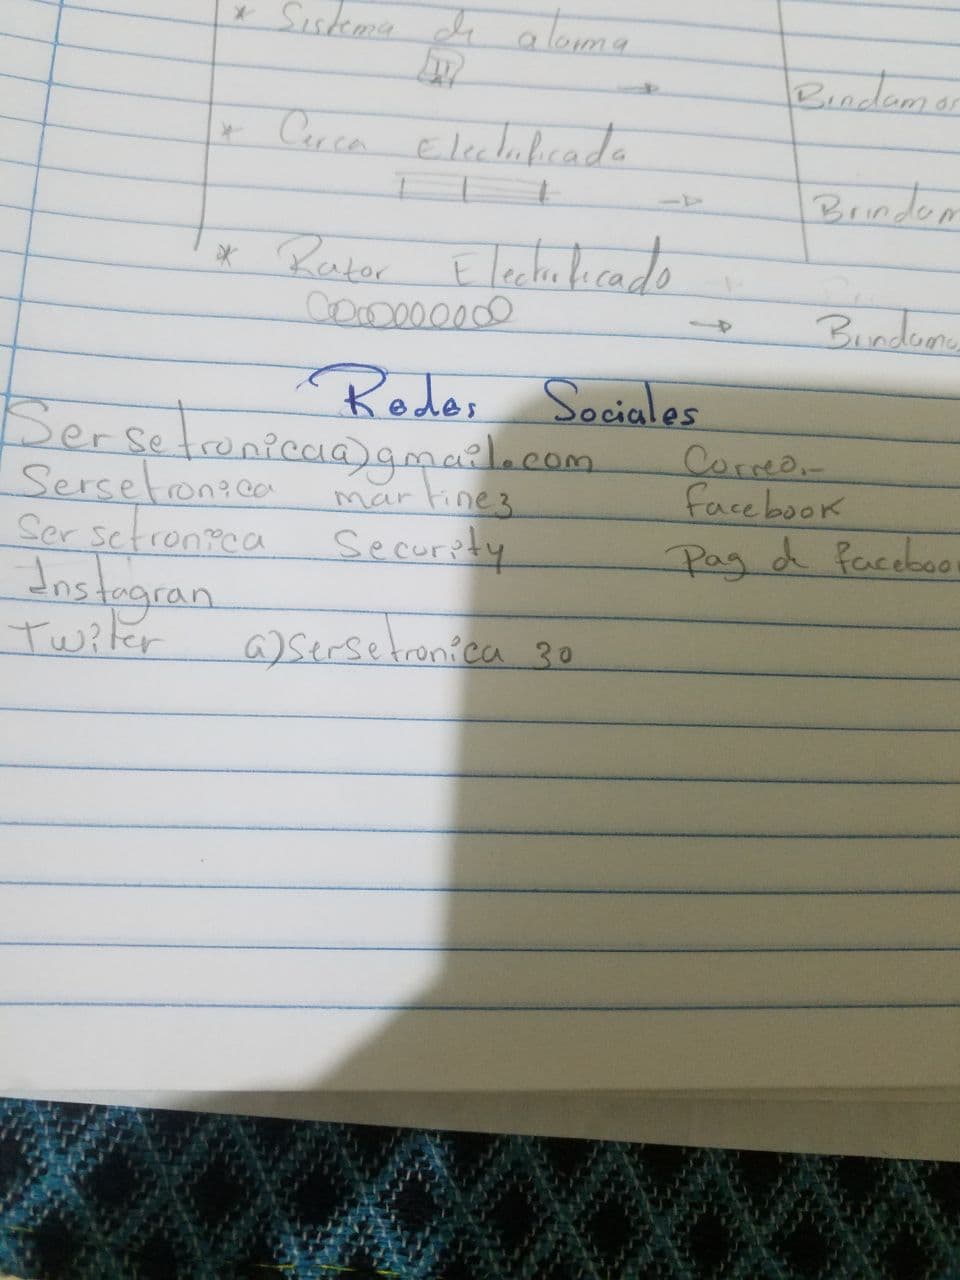 * Sistema de alarma
Brindamos
* Cerca Electrificada
Brindam
* Rator Electrificado
Brindamo
Redes Sociales
Sersetronica@gmail.com Correo.-
Sersetronica martinez facebook
Sersetronica Security Pag de faceboo
Instagran
Twiter @Sersetronica 30